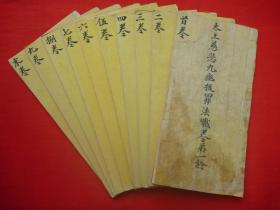 太上慈悲九幽拔罪法懺卷第一
首卷
二卷
三卷
四卷
伍卷
六卷
七卷
捌卷
九卷
末卷